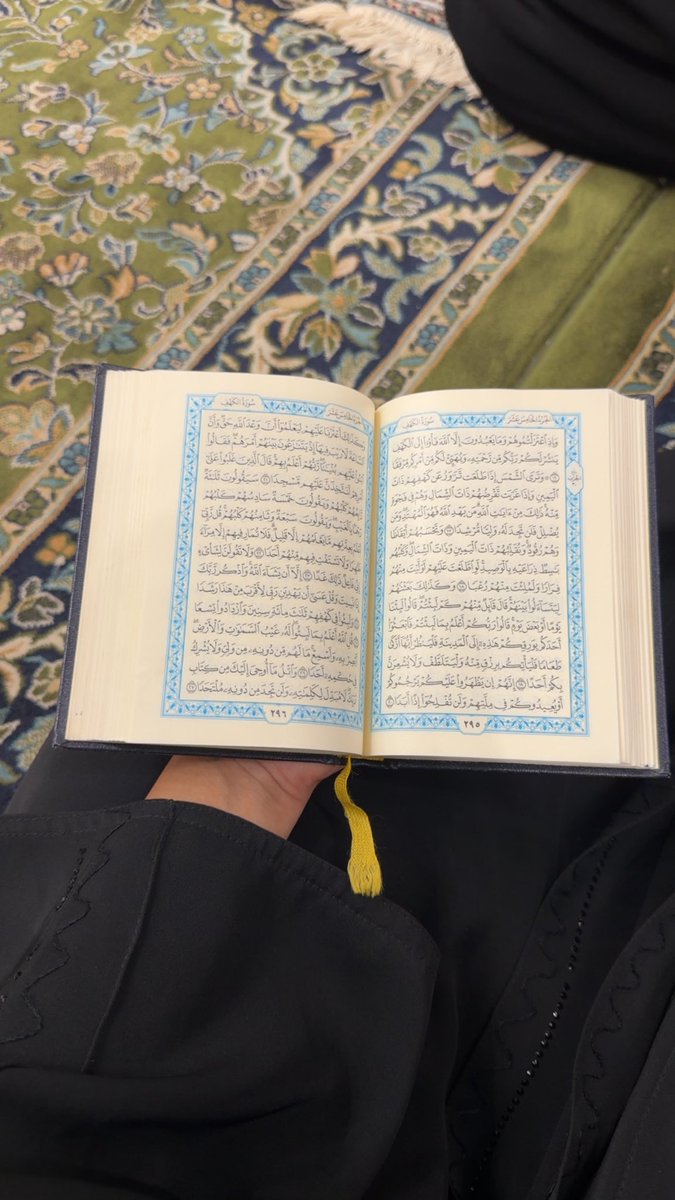 الجزء الخامس عشر سورة الكهف
وَإِذِ ٱعْتَزَلْتُمُوهُمْ وَمَا يَعْبُدُونَ إِلَّا ٱللَّهَ فَأْوُۥٓا۟ إِلَى ٱلْكَهْفِ
يَنشُرْ لَكُمْ رَبُّكُم مِّن رَّحْمَتِهِۦ وَيُهَيِّئْ لَكُم مِّنْ أَمْرِكُم مِّرْفَقًا
١٦ ۞ وَتَرَى ٱلشَّمْسَ إِذَا طَلَعَت تَّزَٰوَرُ عَن كَهْفِهِمْ ذَاتَ
ٱلْيَمِينِ وَإِذَا غَرَبَت تَّقْرِضُهُمْ ذَاتَ ٱلشِّمَالِ وَهُمْ فِى فَجْوَةٍ
مِّنْهُ ذَٰلِكَ مِنْ ءَايَٰتِ ٱللَّهِ مَن يَهْدِ ٱللَّهُ فَهُوَ ٱلْمُهْتَدِ وَمَن
يُضْلِلْ فَلَن تَجِدَ لَهُۥ وَلِيًّا مُّرْشِدًا ١٧ وَتَحْسَبُهُمْ أَيْقَاظًا
وَهُمْ رُقُودٌ وَنُقَلِّبُهُمْ ذَاتَ ٱلْيَمِينِ وَذَاتَ ٱلشِّمَالِ وَكَلْبُهُم
بَٰسِطٌ ذِرَاعَيْهِ بِٱلْوَصِيدِ لَوِ ٱطَّلَعْتَ عَلَيْهِمْ لَوَلَّيْتَ مِنْهُمْ
فِرَارًا وَلَمُلِئْتَ مِنْهُمْ رُعْبًا ١٨ وَكَذَٰلِكَ بَعَثْنَٰهُمْ
لِيَتَسَآءَلُوا۟ بَيْنَهُمْ قَالَ قَآئِلٌ مِّنْهُمْ كَمْ لَبِثْتُمْ قَالُوا۟ لَبِثْنَا
يَوْمًا أَوْ بَعْضَ يَوْمٍ قَالُوا۟ رَبُّكُمْ أَعْلَمُ بِمَا لَبِثْتُمْ فَٱبْعَثُوٓا۟
أَحَدَكُم بِوَرِقِكُمْ هَٰذِهِۦٓ إِلَى ٱلْمَدِينَةِ فَلْيَنظُرْ أَيُّهَآ أَزْكَىٰ
طَعَامًا فَلْيَأْتِكُم بِرِزْقٍ مِّنْهُ وَلْيَتَلَطَّفْ وَلَا يُشْعِرَنَّ
بِكُمْ أَحَدًا ١٩ إِنَّهُمْ إِن يَظْهَرُوا۟ عَلَيْكُمْ يَرْجُمُوكُمْ
أَوْ يُعِيدُوكُمْ فِى مِلَّتِهِمْ وَلَن تُفْلِحُوٓا۟ إِذًا أَبَدًا ٢٠
٢٩٥
الجزء الخامس عشر سورة الكهف
وَكَذَٰلِكَ أَعْثَرْنَا عَلَيْهِمْ لِيَعْلَمُوٓا۟ أَنَّ وَعْدَ ٱللَّهِ حَقٌّ وَأَنَّ
ٱلسَّاعَةَ لَا رَيْبَ فِيهَآ إِذْ يَتَنَٰزَعُونَ بَيْنَهُمْ أَمْرَهُمْ فَقَالُوا۟
ٱبْنُوا۟ عَلَيْهِم بُنْيَٰنًا رَّبُّهُمْ أَعْلَمُ بِهِمْ قَالَ ٱلَّذِينَ غَلَبُوا۟ عَلَىٰٓ
أَمْرِهِمْ لَنَتَّخِذَنَّ عَلَيْهِم مَّسْجِدًا ٢١ سَيَقُولُونَ ثَلَٰثَةٌ
رَّابِعُهُمْ كَلْبُهُمْ وَيَقُولُونَ خَمْسَةٌ سَادِسُهُمْ كَلْبُهُمْ
رَجْمًۢا بِٱلْغَيْبِ وَيَقُولُونَ سَبْعَةٌ وَثَامِنُهُمْ كَلْبُهُمْ قُل رَّبِّىٓ
أَعْلَمُ بِعِدَّتِهِم مَّا يَعْلَمُهُمْ إِلَّا قَلِيلٌ فَلَا تُمَارِ فِيهِمْ إِلَّا مِرَآءً
ظَٰهِرًا وَلَا تَسْتَفْتِ فِيهِم مِّنْهُمْ أَحَدًا ٢٢ وَلَا تَقُولَنَّ لِشَا۟ىْءٍ
إِنِّى فَاعِلٌ ذَٰلِكَ غَدًا ٢٣ إِلَّآ أَن يَشَآءَ ٱللَّهُ وَٱذْكُر رَّبَّكَ
إِذَا نَسِيتَ وَقُلْ عَسَىٰٓ أَن يَهْدِيَنِ رَبِّى لِأَقْرَبَ مِنْ هَٰذَا رَشَدًا
٢٤ وَلَبِثُوا۟ فِى كَهْفِهِمْ ثَلَٰثَ مِا۟ئَةٍ سِنِينَ وَٱزْدَادُوا۟ تِسْعًا
٢٥ قُلِ ٱللَّهُ أَعْلَمُ بِمَا لَبِثُوا۟ لَهُۥ غَيْبُ ٱلسَّمَٰوَٰتِ وَٱلْأَرْضِ
أَبْصِرْ بِهِۦ وَأَسْمِعْ مَا لَهُم مِّن دُونِهِۦ مِن وَلِىٍّ وَلَا يُشْرِكُ
فِى حُكْمِهِۦٓ أَحَدًا ٢٦ وَٱتْلُ مَآ أُوحِىَ إِلَيْكَ مِن كِتَابِ
رَبِّكَ لَا مُبَدِّلَ لِكَلِمَٰتِهِۦ وَلَن تَجِدَ مِن دُونِهِۦ مُلْتَحَدًا ٢٧
٢٩٦